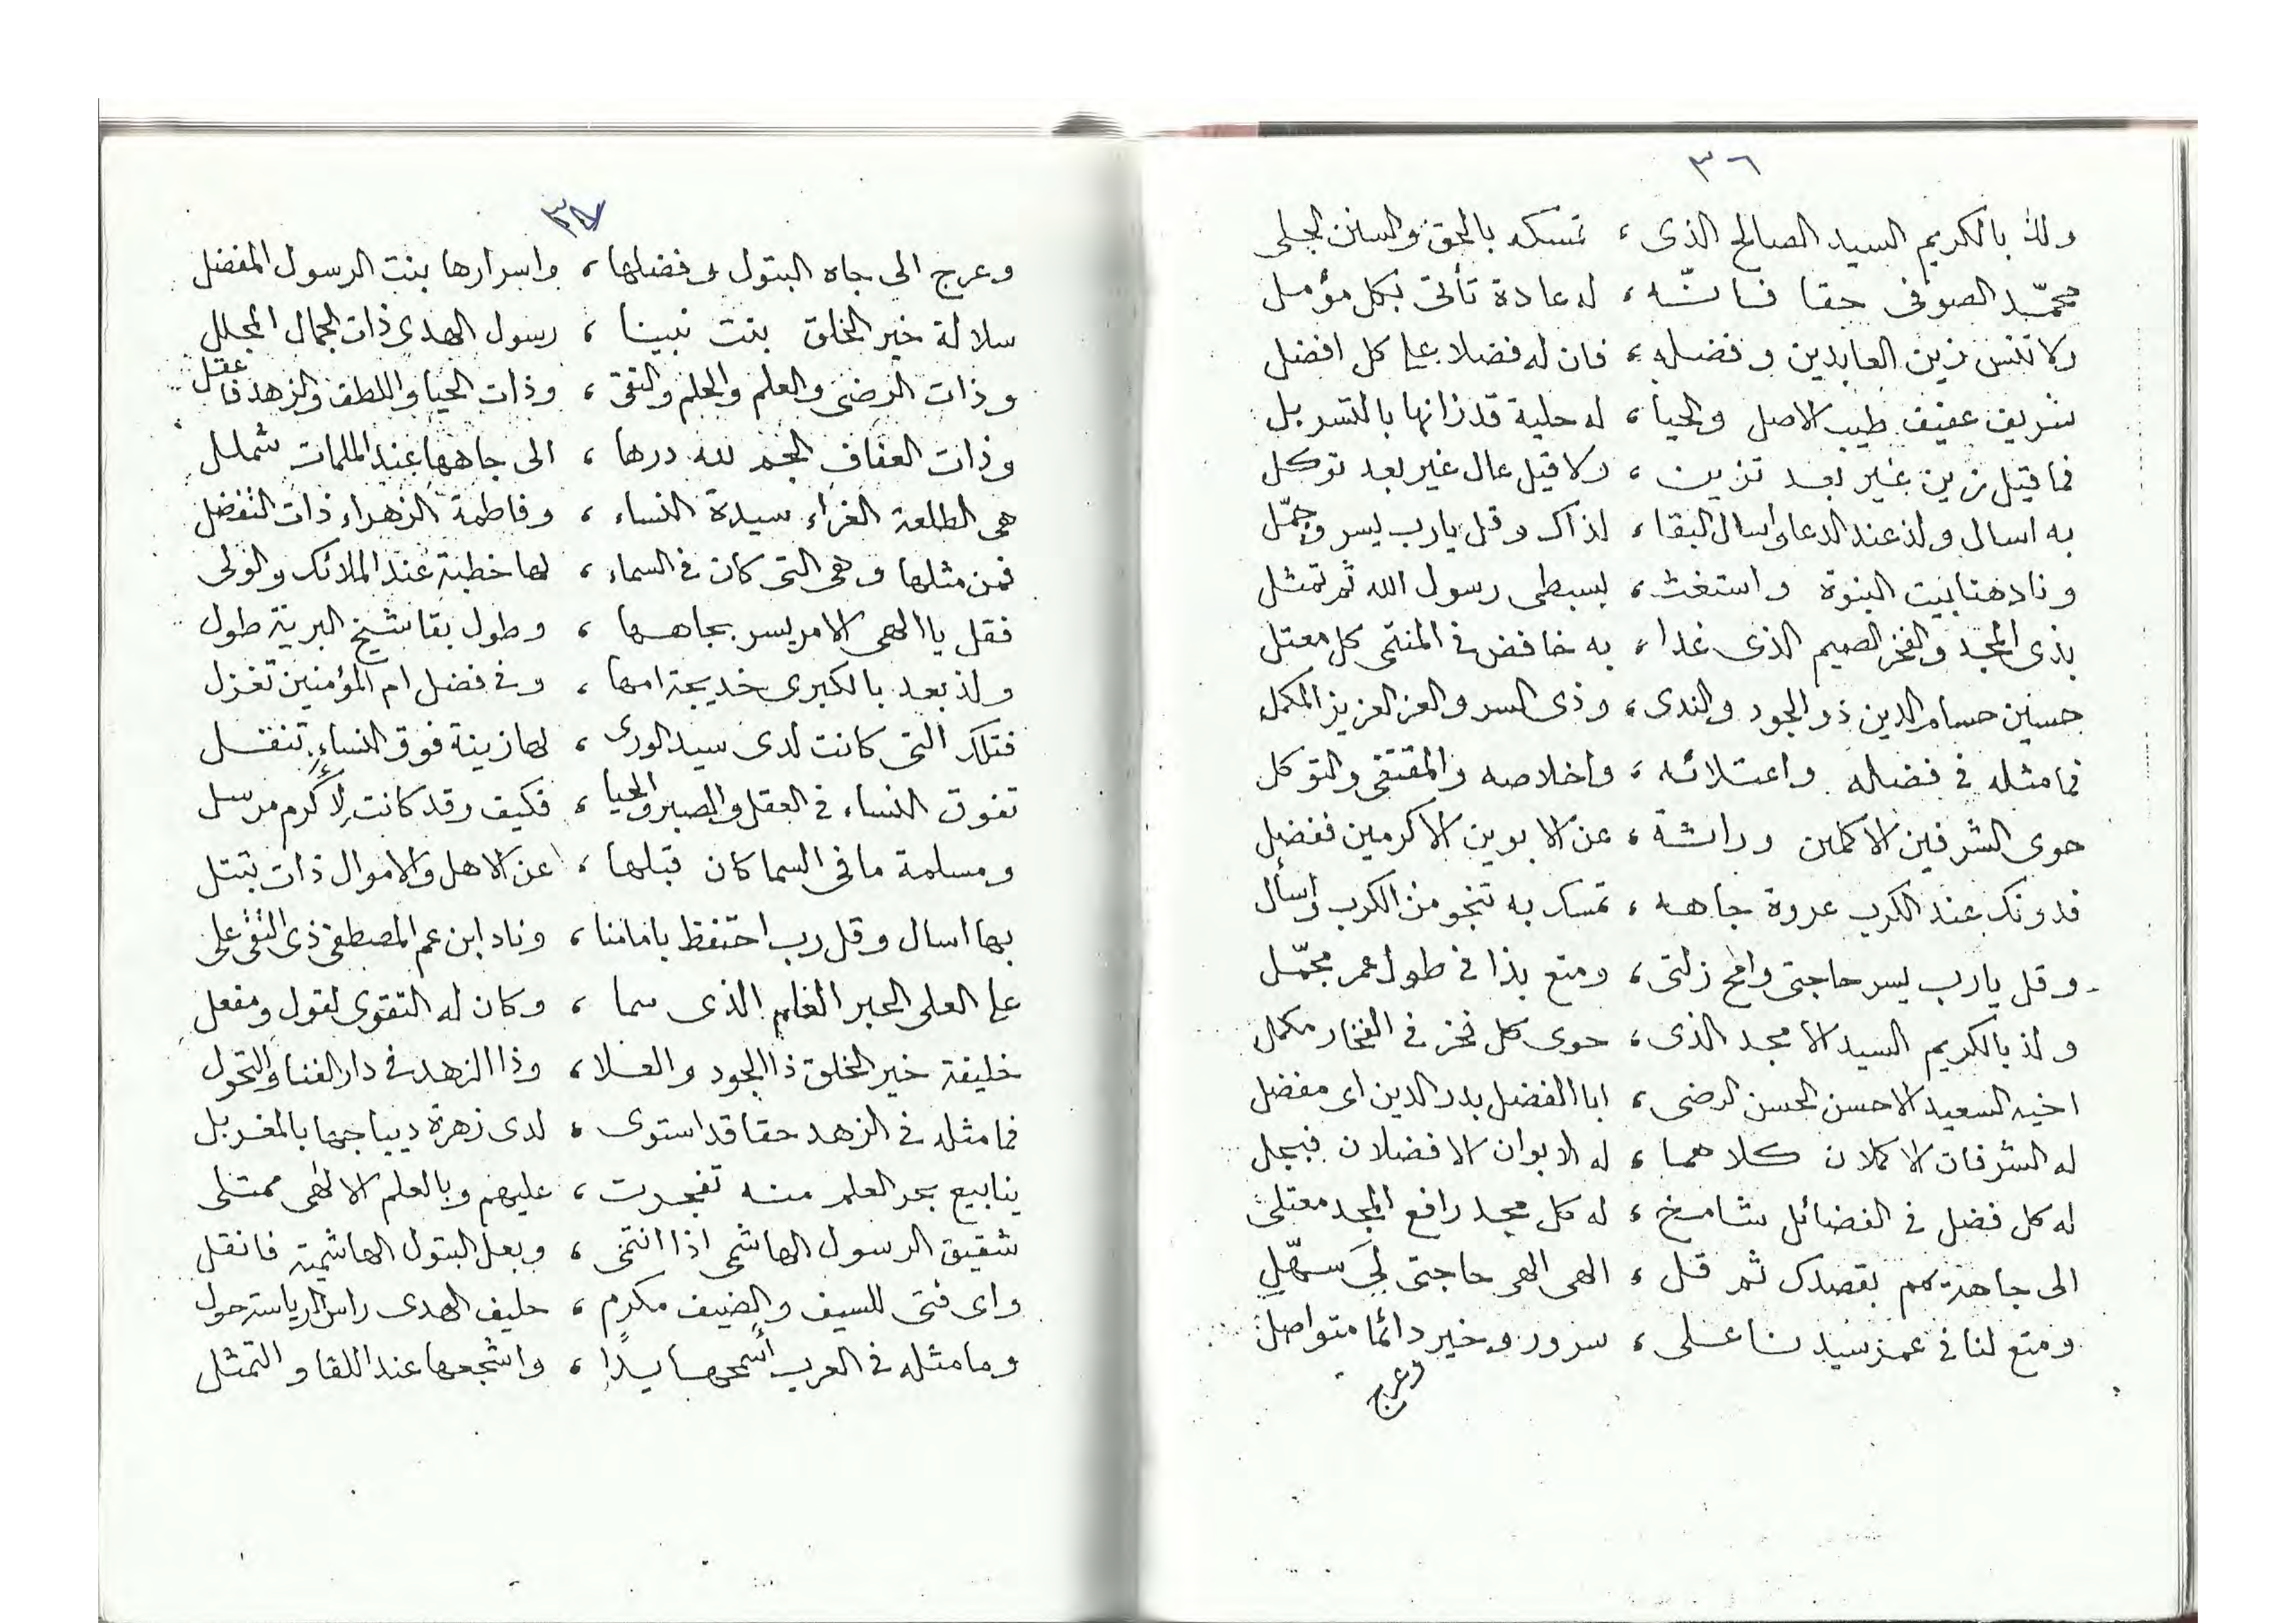 ٣٦
ولذ بالكريم السيد الصالح الذى ، تمسكه بالحق والسنن الجلى
محمّد الصوفى حقا فانّه ، له عادة تأتى بكل مؤمل
ولا تنس زين العابدين وفضله ، فان له فضلا على كل افضل
شريف عفيف طيب الاصل والحيا ، له حلية قد زانها بالتسربل
فما قيل زين غير بعد تزين ، ولا قيل عال غير بعد توكل
به اسال ولذ عند الدعا واسال البقا ، لذاك وقل يارب يسر وجمّل
وناد هنا بيت النبوة واستغث ، بسبطى رسول الله ثم تمثل
بذى المجد والفخر الصميم الذى غدا ، به خافض فى المنتمى كل معتل
حسين حسام الدين ذو الجود والندى ، وذى السر والعز العزيز المكمل
فما مثله فى فضله واعتلائه ، واخلاصه والمقتفى والتوكل
حوى الشرفين الاكملين وراثة ، عن الابوين الاكرمين ففضل
فدونك عند الكرب عروة جاهه ، تمسك به تنجو من الكرب واسأل
وقل يارب يسر حاجتى وامح زلتى ، ومتع بذا فى طول عمر مجمّل
ولذ بالكريم السيد الامجد الذى ، حوى كل فخر فى الفخار مكمل
اخيه السعيد الاحسن الحسن الرضى ، ابا الفضل بدر الدين اى مفضل
له الشرفان الاكملان كلاهما ، له الابوان الافضلان فبجل
له كل فضل فى الفضائل شامخ ، له كل مجد رافع المجد معتلى
الى جاهه يمم بقصدك ثم قل ، الهى الهى حاجتى لى سهّل
ومتع لنا فى عمر سيدنا على ، سرور وخير دائما متواصل
وعرج
٣٧
وعرج الى جاه البتول وفضلها ، واسرارها بنت الرسول المفضل
سلالة خير الخلق بنت نبينا ، رسول الهدى ذات الجمال المجلل
وذات الرضى والعلم والحلم والتقى ، وذات الحيا واللطف والزهد فاعقل
وذات العفاف الجم لله درها ، الى جاهها عند الملمات شملل
هى الطلعة الغراء سيدة النساء ، وفاطمة الزهراء ذات التفضل
فمن مثلها وهى التى كان فى السماء ، لها خطبة عند الملائك والولى
فقل يا الهى الامر يسر بجاهها ، وطول بقا شيخ البرية طول
ولذ بعد بالكبرى خديجة امها ، وفى فضل ام المؤمنين تغزل
فتلك التى كانت لدى سيد الورى ، لها زينة فوق النساء تنفل
تفوق النساء فى العقل والصبر والحيا ، فكيف وقد كانت لأكرم مرسل
ومسلمة ما فى السما كان قبلها ، عن الاهل والاموال ذات تبتل
بها اسال وقل رب احتفظ بامامنا ، وناد ابن عم المصطفى ذى التقى على
على العلى الحبر العلم الذى سما ، وكان له التقوى لقول ومفعل
خليفة خير الخلق ذا الجود والعلا ، وذا الزهد فى دار الفنا والتحول
فما مثله فى الزهد حقا قد استوى ، لدى زهرة ديباجها بالمغربل
ينابيع بحر العلم منه تفجرت ، عليهم وبالعلم الالهى ممتلى
شقيق الرسول الهاشمى اذا انتمى ، وبعل البتول الهاشمية فانقل
واى فتى للسيف والضيف مكرم ، حليف الهدى راس الرياسة حول
وما مثله فى العرب أسمحها يدا ، واشجعها عند اللقا والتمثل